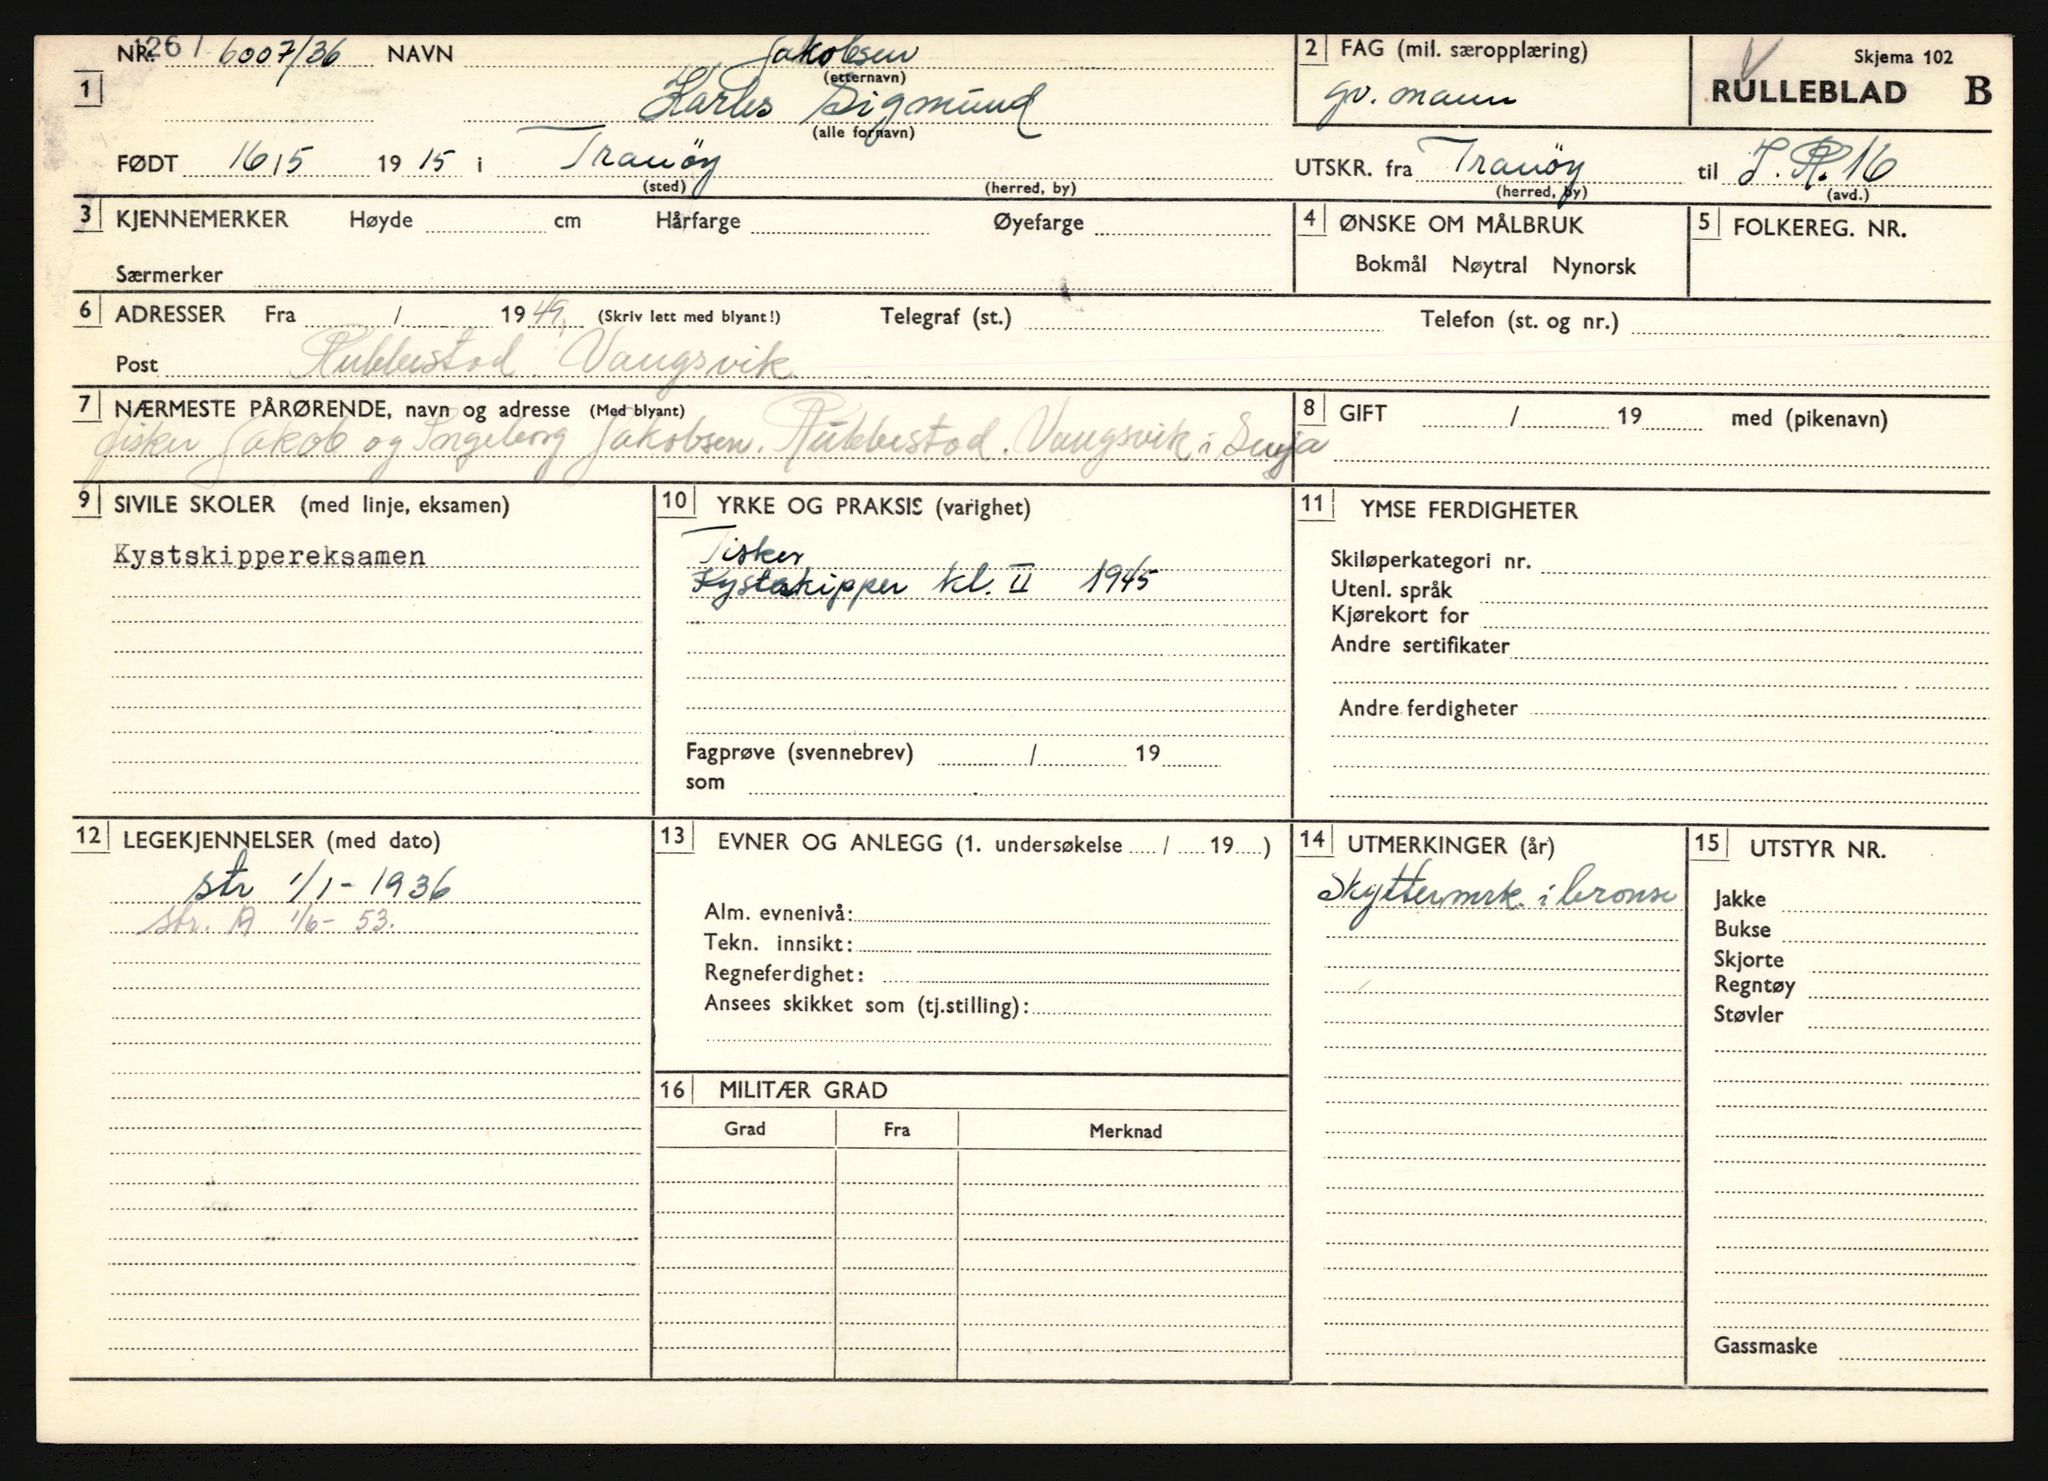 NR. 1261 6007/36 NAVN Jakobsen
(etternavn)
1 Karles Sigmund
(alle fornavn)
FØDT 16/5 1915 i Tranøy
(sted) (herred, by)
2 FAG (mil. særopplæring)
gv. mann
Skjema 102
RULLEBLAD B
UTSKR. fra Tranöy til I.R.16
(herred, by) (avd.)
3 KJENNEMERKER Høyde cm Hårfarge Øyefarge
Særmerker
4 ØNSKE OM MÅLBRUK
Bokmål Nøytral Nynorsk
5 FOLKEREG. NR.
6 ADRESSER Fra / 1949 (Skriv lett med blyant!) Telegraf (st.) Telefon (st. og nr.)
Post Rubbestad. Vangsvik
7 NÆRMESTE PÅRØRENDE, navn og adresse (Med blyant)
fisker Jakob og Ingeborg Jakobsen. Rubbestad. Vangsvik i Senja
8 GIFT / 19 med (pikenavn)
9 SIVILE SKOLER (med linje, eksamen)
Kystskippereksamen
10 YRKE OG PRAKSIS (varighet)
Fisker
Kystskipper kl. II 1945
Fagprøve (svennebrev) / 19
som
11 YMSE FERDIGHETER
Skiløperkategori nr.
Utenl. språk
Kjørekort for
Andre sertifikater
Andre ferdigheter
12 LEGEKJENNELSER (med dato)
str 1/1-1936
str. A 1/6-53.
13 EVNER OG ANLEGG (1. undersøkelse / 19 )
Alm. evnenivå:
Tekn. innsikt:
Regneferdighet:
Ansees skikket som (tj.stilling):
14 UTMERKINGER (år)
Skyttermrk. i bronse
15 UTSTYR NR.
Jakke
Bukse
Skjorte
Regntøy
Støvler
Gassmaske
16 MILITÆR GRAD
Grad Fra Merknad